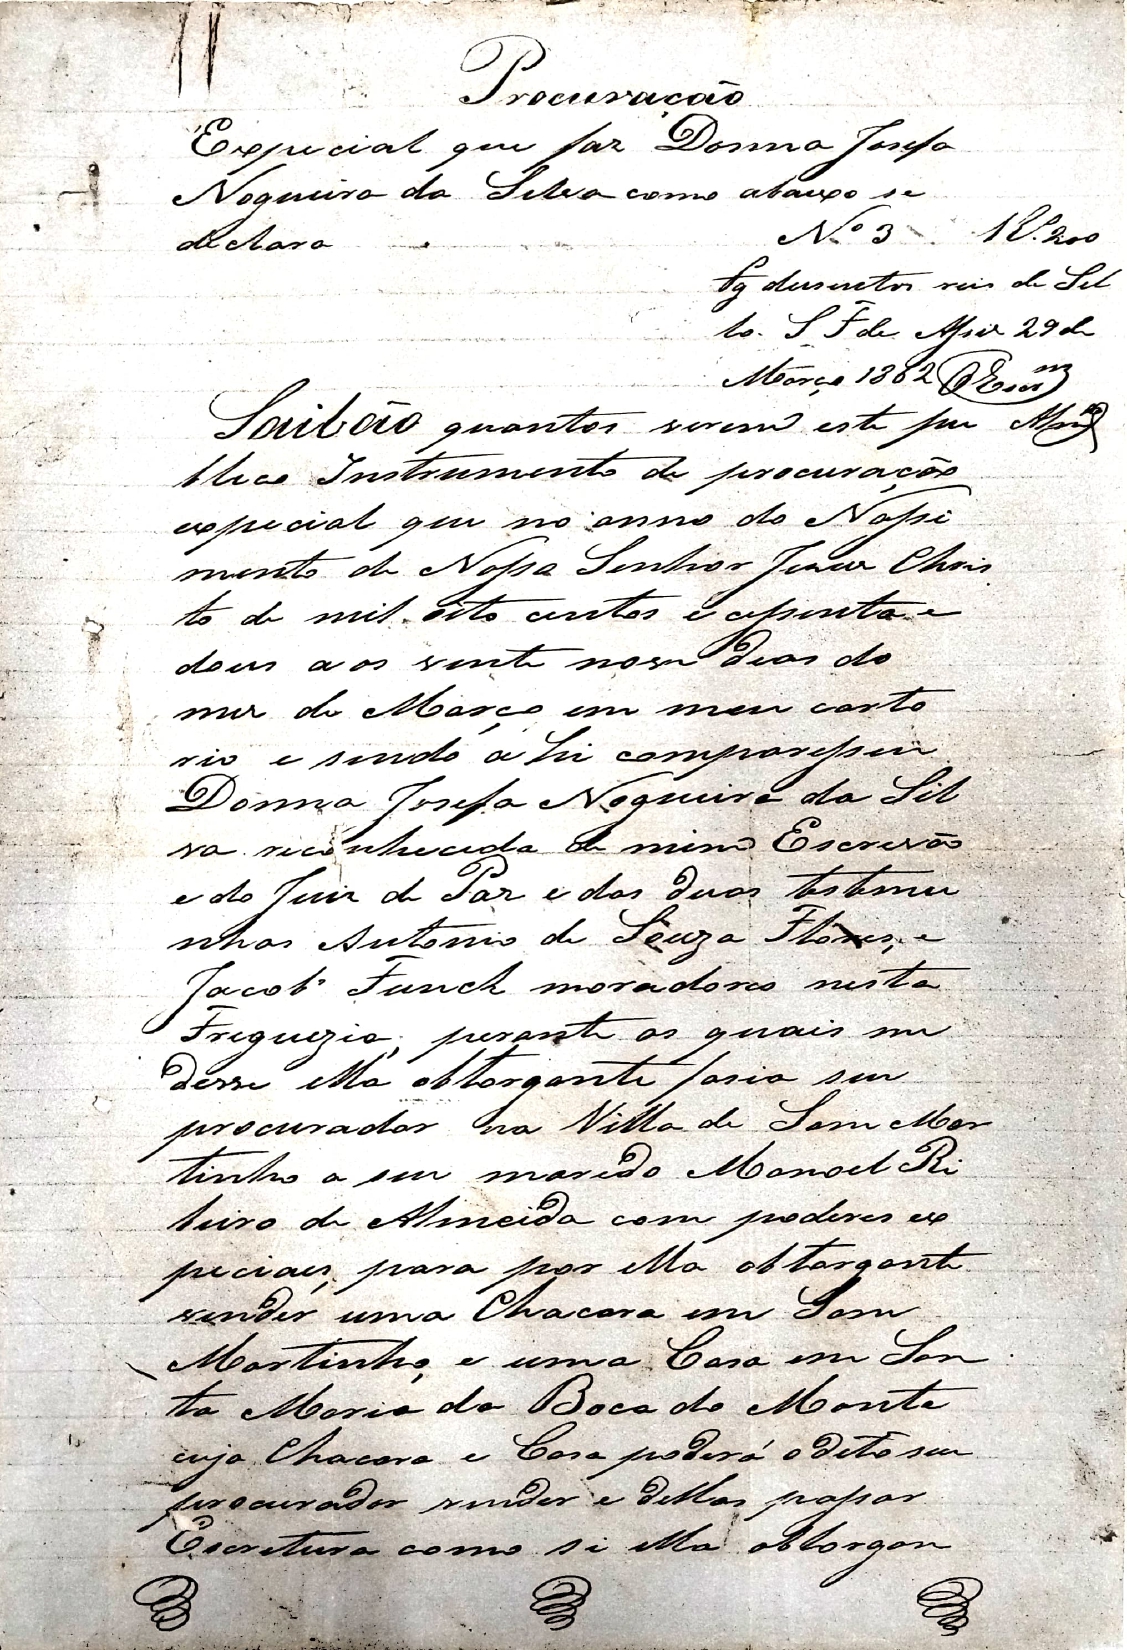 Procuração
Especial que faz Donna Josefa
Nogueira da Silva como abaixo se
declara
Nº 3 Rs. 200
Pg dusentos reis de Sel
lo. S F de Assis 29 de
Março 1862
Saibão quantos virem este pu
blico Instrumento de procuração
especial que no anno do Nassi
mento de Nossa Senhor Jezus Chris
to de mil oito centos e cessenta e
dous aos vente nove dias do
mez de Março em meu carto
rio e sendo ahi comparesseu
Donna Josefa Nogueira da Sil
va reconhecida de mim Escrivão
e do Juiz de Paz e das duas testemu
nhas Antonio de Souza Flores, e
Jacob Funch moradores nesta
Freguezia, perante os quais me
desse ella obtorgante fasia seu
procurador na Villa de Sam Mar
tinho a seu marido Manoel Ri
beiro de Almeida com poderes ex
peciaes, para por ella obtorgante
vender uma Chacara em Sam
Martinho, e uma Casa em San
ta Maria da Boca do Monte
cuja Chacara e Casa poderá o dito seu
procurador vender e dellas passar
Escretura como si ella obtorgan